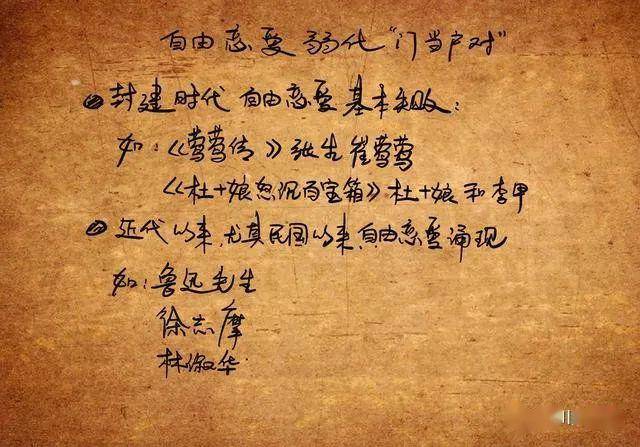 自由恋爱 弱化“门当户对”
① 封建时代 自由恋爱 基本失败:
如:《莺莺传》张生 崔莺莺
《杜十娘怒沉百宝箱》杜十娘 和 李甲
② 近代以来,尤其民国以来,自由恋爱涌现
如:鲁迅先生
徐志摩
林淑华